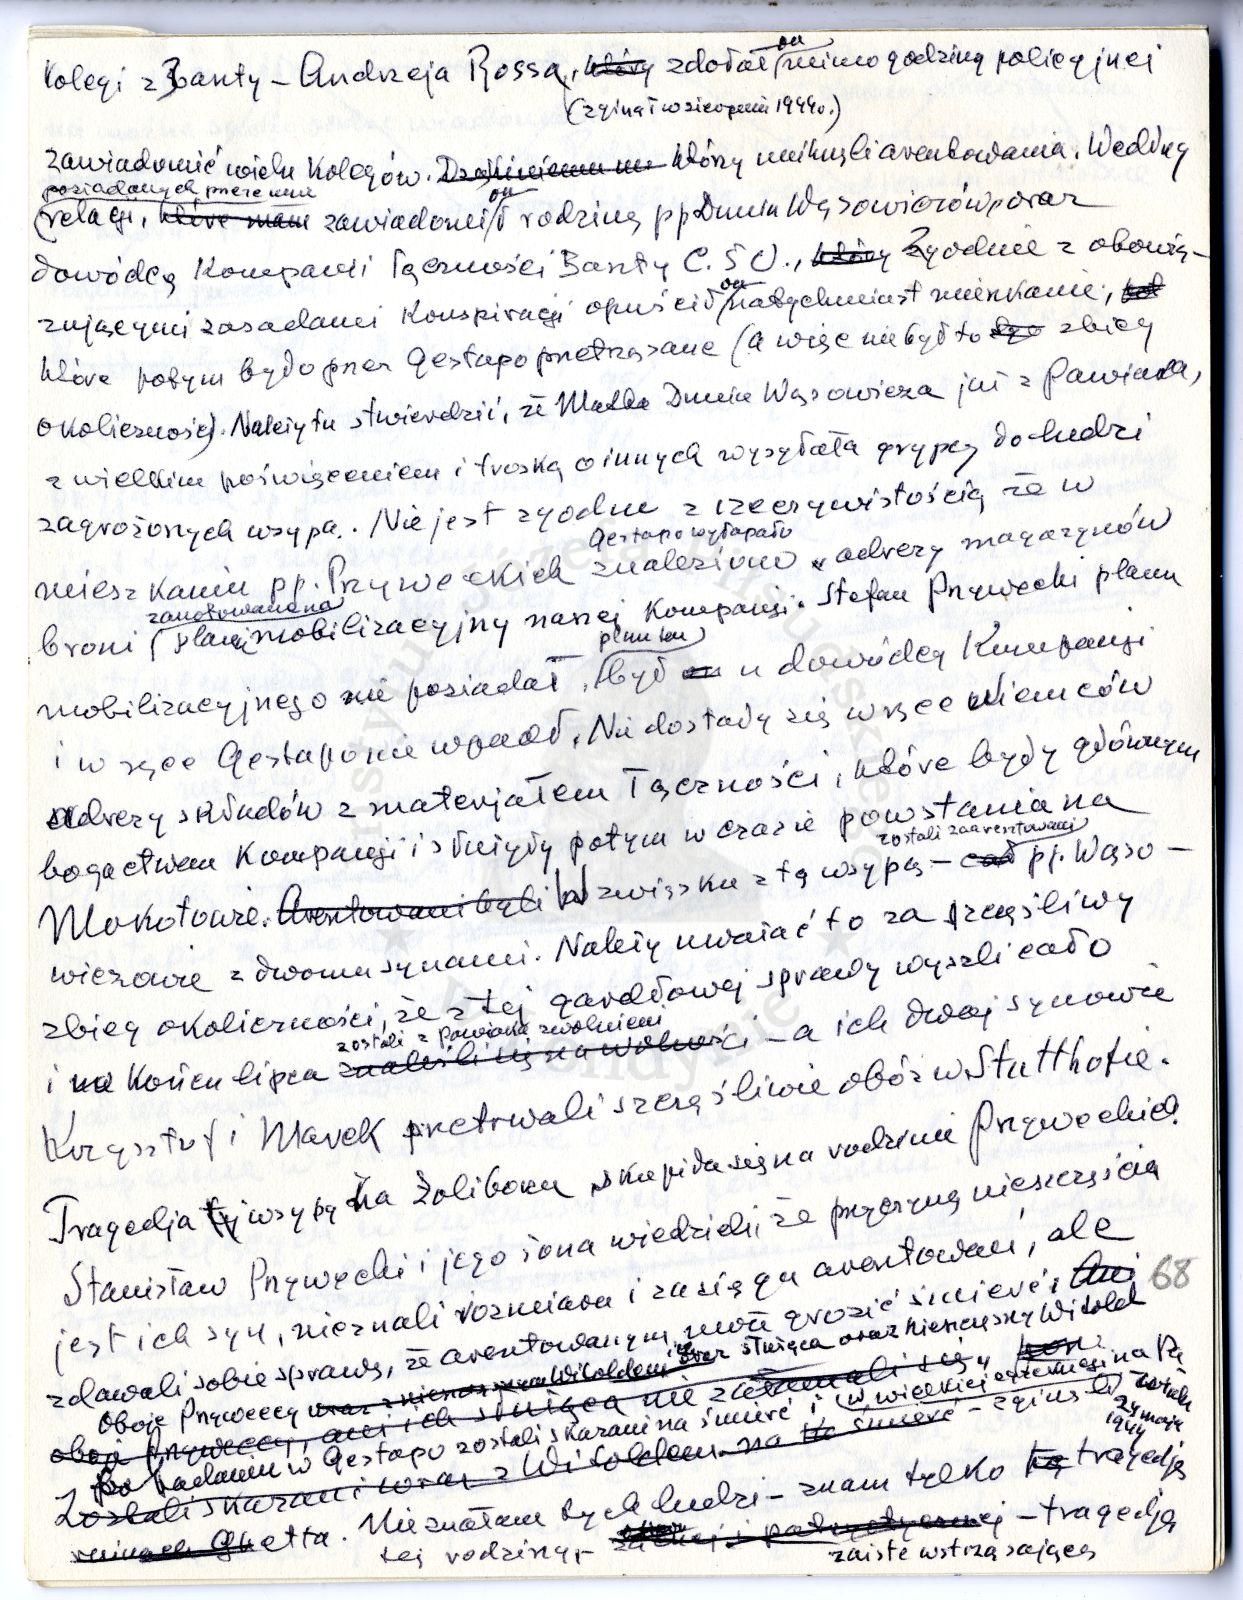 Kolegi z Baszty – Andrzeja Rossa, który zdołał on mimo godziny policyjnej
(zginął w sierpniu 1944 r.)
zawiadomić wielu Kolegów. którzy uniknęli aresztowania. Według
posiadanych przeze mnie
relacji, które mam zawiadomił on rodzinę pp Dunin Wąsowiczów, oraz
dowódcę Kompanii Łączności Baszty C.5 U., który Zgodnie z obowią-
zującymi zasadami Konspiracji opuścił on natychmiast mieszkanie,
które potym było przez Gestapo przetrząsane (a więc nie był to zbieg
okoliczności). Należy tu stwierdzić, że Matka Dunin Wąsowicza już z Pawiaka,
z wielkim poświęceniem i troską o innych wysyłała grypsy do ludzi
zagrożonych wsypą. Nie jest zgodne z rzeczywistością że w
Gestapo wyłapało
mieszkaniu pp. Przyweckich znaleziono adresy magazynów
zanotowane na
broni (planie mobilizacyjny naszej Kompanji. Stefan Przywecki planu
plan ten
mobilizacyjnego nie posiadał, był on u dowódcy Kompanji
i w ręce Gestapo nie wpadł. Nie dostały się w ręce Niemców
adresy składów z materjałem Łączności, które były głównym
bogactwem Kompanji i służyły potym w czasie powstania na
zostali zaaresztowani
Mokotowie. Aresztowani byli W związku z tą wsypą – pp. Wąso-
wiczowie z dwoma synami. Należy uważać to za szczęśliwy
zbieg okoliczności, że z tej gardłowej sprawy wyszli cało
zostali z Pawiaka zwolnieni
i na Końcu lipca znaleźli się na wolności – a ich dwaj synowie
Krzysztof i Marek przetrwali szczęśliwie obóz w Stutthofie.
Tragedja tej wsypy na Żoliborzu skupiła się na rodzinie Przyweckich.
Stanisław Przywecki i jego żona wiedzieli że przyczyną nieszczęścia
jest ich syn, nieznali rozmiaru i zasięgu aresztowań, ale
68
zdawali sobie sprawę, że aresztowanym może grozić śmierć. Ani
Oboje Przyweccy wraz z Witoldem oraz służąca oraz Witold
oboje Przyweccy, ani ich służąca nie załamali się
Po badaniu w Gestapo zostali skazani na śmierć i w wielkiej
Zostali skazani wraz z Witoldem na śmierć – zginęli
24 maja
1944
ruinach Ghetta. Nie znałam tych ludzi – znam tylko tą tragedję
tej rodziny, – zacnej i patryotycznej – tragedją
zaiste wstrząsającą